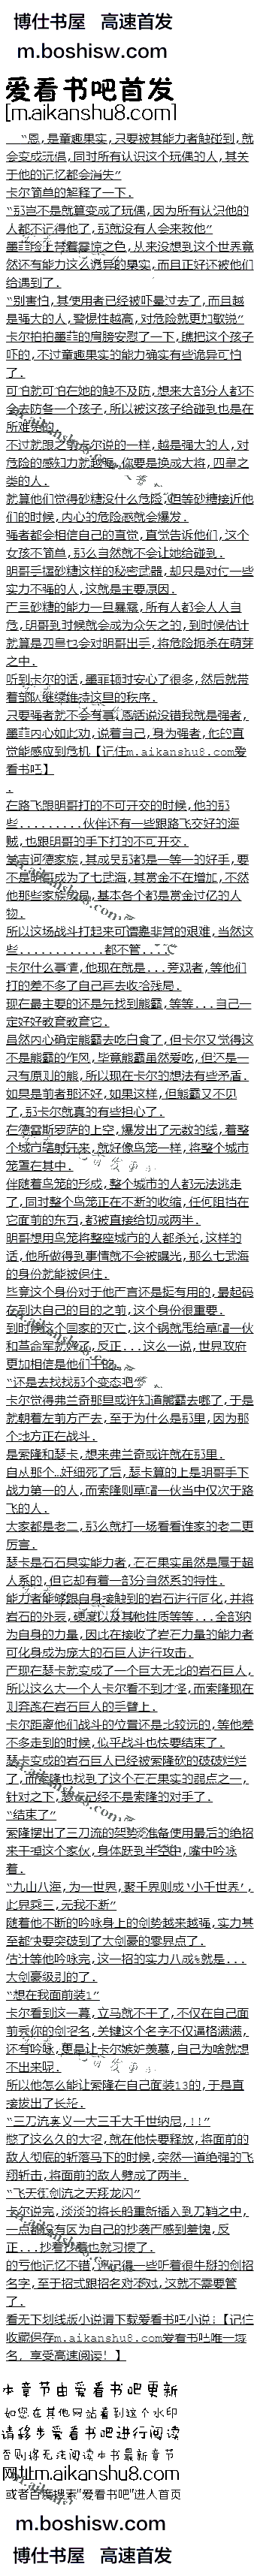 博仕书屋 高速首发
m.boshisw.com
爱看书吧首发
[m.aikanshu8.com]
“恩，是童趣果实，只要被其能力者触碰到，就
会变成玩偶，同时所有认识这个玩偶的人，其关
于他的记忆都会消失”
卡尔简单的解释了一下．
“那岂不是就算变成了玩偶，因为所有认识他的
人都不记得他了，那就没有人会来救他”
墨菲脸上带着震惊之色，从来没想到这个世界竟
然还有能力这么诡异的果实，而且正好还被他们
给遇到了．
“别害怕，其使用者已经被吓晕过去了，而且越
是强大的人，警惕性越高，对危险就更加敏锐”
卡尔拍拍墨菲的肩膀安慰了一下，瞧把这个孩子
吓的，不过童趣果实的能力确实有些诡异可怕
了．
可怕就可怕在她的触不及防，想来大部分人都不
会去防备一个孩子，所以被这孩子给碰到也是在
所难免的．
不过就跟之前卡尔说的一样，越是强大的人，对
危险的感知力就越强，你要是换成大将，四皇之
类的人．
就算他们觉得砂糖没什么危险，但等砂糖接近他
们的时候，内心的危险感就会爆发．
强者都会相信自己的直觉，直觉告诉他们，这个
女孩不简单，那么当然就不会让她给碰到．
明哥手握砂糖这样的秘密武器，却只是对付一些
实力不强的人，这就是主要原因．
产三砂糖的能力一旦暴露，所有人都会人人自
危，明哥到时候就会成为众矢之的，到时候估计
就算是四皇也会对明哥出手，将危险扼杀在萌芽
之中．
听到卡尔的话，墨菲顿时安心了很多，然后就带
着部队继续维持这里的秩序．
只要强者就不会有事，恩话说没错我就是强者，
墨菲内心如此劝，说着自己，身为强者，他的直
觉能感应到危机【记住m.aikanshu8.com爱
看书吧】
．
在路飞跟明哥打的不可开交的时候，他的那
些.........伙伴还有一些跟路飞交好的海
贼，也跟明哥的手下打的不可开交．
堂吉诃德家族，其成员那都是一等一的好手，要
不是明哥成为了七武海，其赏金不在增加，不然
他那些家族成员，基本各个都是赏金过亿的人
物．
所以这场战斗打起来可谓是非常的艰难，当然这
些............都不管....
卡尔什么事情，他现在就是...旁观者，等他们
打的差不多了自己再去收拾残局．
现在最主要的还是先找到熊霸，等等...自己一
定好好教育教育它．
虽然内心确定熊霸去吃白食了，但卡尔又觉得这
不是熊霸的作风，毕竟熊霸虽然爱吃，但还是一
只有原则的熊，所以现在卡尔的想法有些矛盾．
如果是前者那还好，如果这样，但熊霸又不见
了，那卡尔就真的有些担心了．
在德雷斯罗萨的上空，爆发出了无数的线，着整
个城市辐射开来，就好像鸟笼一样，将整个城市
笼罩在其中．
伴随着鸟笼的形成，整个城市的人都无法逃走
了，同时整个鸟笼正在不断的收缩，任何阻挡在
它面前的东西，都被直接给切成两半．
明哥想用鸟笼将整座城市的人都杀光，这样的
话，他所做得到事情就不会被曝光，那么七武海
的身份就能被保住．
毕竟这个身份对于他产言还是挺有用的，最起码
在到达自己的目的之前，这个身份很重要．
到时候这个国家的灭亡，这个锅就甩给草帽一伙
和革命军就好了，反正...这么一说，世界政府
更加相信是他们干的．
“还是去找找那个变态吧”
卡尔觉得弗兰奇那里或许知道熊霸去哪了，于是
就朝着左前方产去，至于为什么是那里，因为那
个地方正在战斗．
是索隆和瑟卡，想来弗兰奇或许就在那里．
自从那个...奸细死了后，瑟卡算的上是明哥手下
战力第一的人，而索隆则草帽一伙当中仅次于路
飞的人．
大家都是老二，那么就打一场看看谁家的老二更
厉害．
瑟卡是石石果实能力者，石石果实虽然是属于超
人系的，但它却有着一部分当然系的特性．
能力者能够跟自身接触到的岩石进行同化，并将
岩石的外表，硬度以及其他性质等等...全部纳
为自身的力量，因此在接收了岩石力量的能力者
可化身成为庞大的石巨人进行攻击．
产现在瑟卡就变成了一个巨大无比的岩石巨人，
所以这么大一个人卡尔看不到才怪，而索隆现在
则奔袭在岩石巨人的手臂上．
卡尔距离他们战斗的位置还是比较远的，等他差
不多走到的时候，似乎战斗也快要结束了．
瑟卡变成的岩石巨人已经被索隆砍的破破烂烂
了，而索隆也找到了这个石石果实的弱点之一，
针对之下，瑟卡已经不是索隆的对手了．
“结束了”
索隆摆出了三刀流的架势，准备使用最后的绝招
来干掉这个家伙，身体跃到半空中，嘴中吟咏
着．
“九山八海，为一世界，聚千界则成‘小千世界’，
此界乘三，无我不断”
随着他不断的吟咏身上的剑势越来越强，实力甚
至都快要突破到了大剑豪的零界点了．
估计等他吟咏完，这一招的实力八成就是...
大剑豪级别的了．
“想在我面前装1”
卡尔看到这一幕，立马就不干了，不仅在自己面
前秀你的剑招名，关键这个名字不仅逼格满满，
还有吟咏，更是让卡尔嫉妒羡慕，自己为啥就想
不出来呢．
所以他怎么能让索隆在自己面装13的，于是直
接拔出了长船．
“三刀流奥义一大三千大千世纳尼，!!”
憋了这么久的大招，就在他快要释放，将面前的
敌人彻底的斩落马下的时候，突然一道绝强的飞
翔斩击，将面前的敌人劈成了两半．
“飞天御剑流之天翔龙闪”
卡尔说完，淡淡的将长船重新插入到刀鞘之中，
一点都没有因为自己的抄袭产感到羞愧，反
正...抄着抄着也就习惯了．
的亏他记忆不错，还记得一些听着很牛掰的剑招
名字，至于招式跟招名对不对，这就不需要管
了．
看无下划线版小说请下载爱看书吧小说；【记住
收藏保存m.aikanshu8.com爱看书吧唯一域
名，享受高速阅读！】
本章节由爱看书吧更新
如您在其他网站看到这个水印
请移步爱看书吧进行阅读
否则将无法阅读本书最新章节
网址m.aikanshu8.com
或者百度搜索“爱看书吧”进入首页
m.boshisw.com
博仕书屋 高速首发